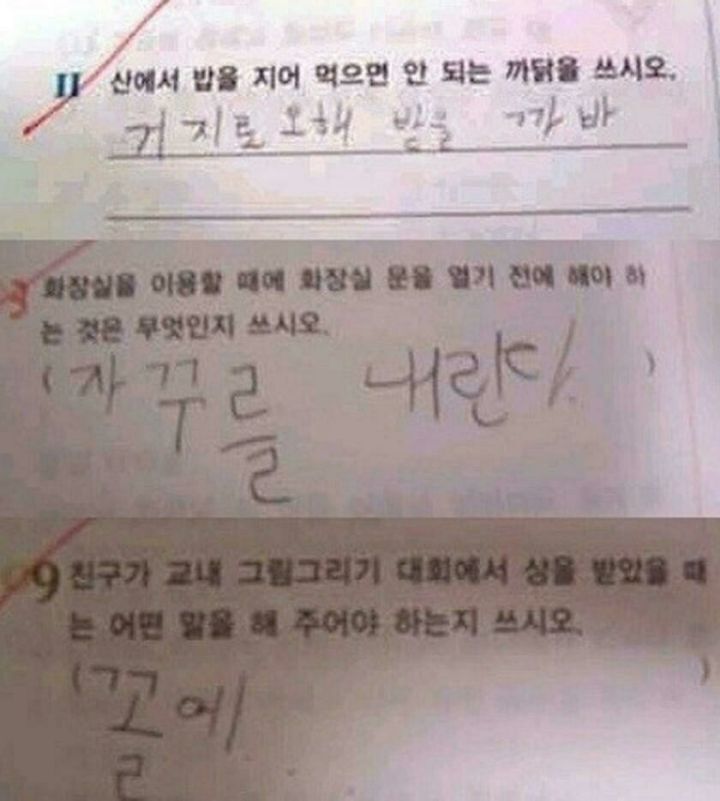 11 산에서 밥을 지어 먹으면 안 되는 까닭을 쓰시오.
거지로 오해 받을 까 바
3 화장실을 이용할 때에 화장실 문을 열기 전에 해야 하
는 것은 무엇인지 쓰시오.
(자꾸를 내린다.)
9 친구가 교내 그림그리기 대회에서 상을 받았을 때
는 어떤 말을 해 주어야 하는지 쓰시오.
(꼴에)